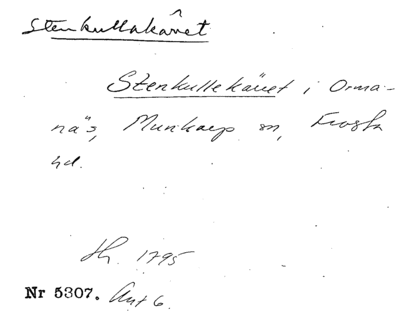 Stenkullakäret
Stenkullekäret i Orma-
näs, Munkarp sn, Frosta
hd.
Hr. 1795
Nr 5307. Akt 6.